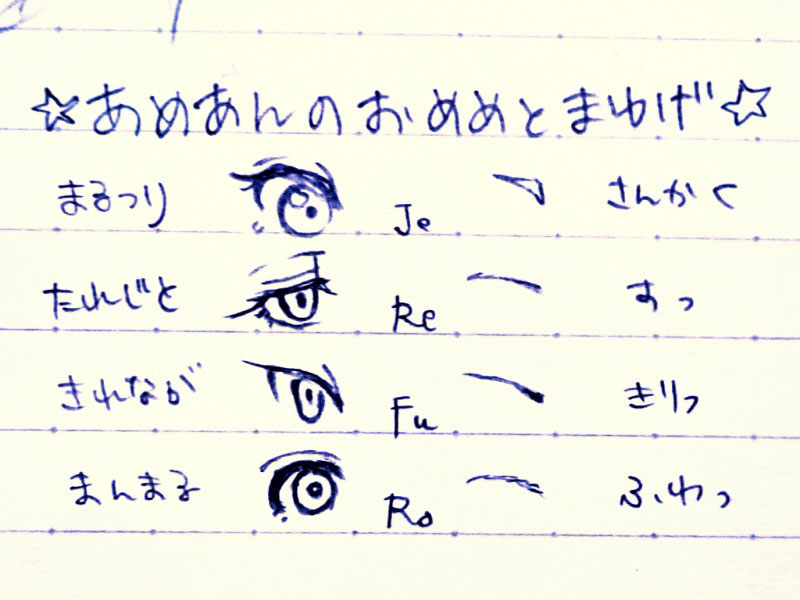 ☆あめあんのおめめとまゆげ☆
まるつり Je さんかく
たれじと Re すっ
きれなが Fu きりっ
まんまる Ro ふわっ